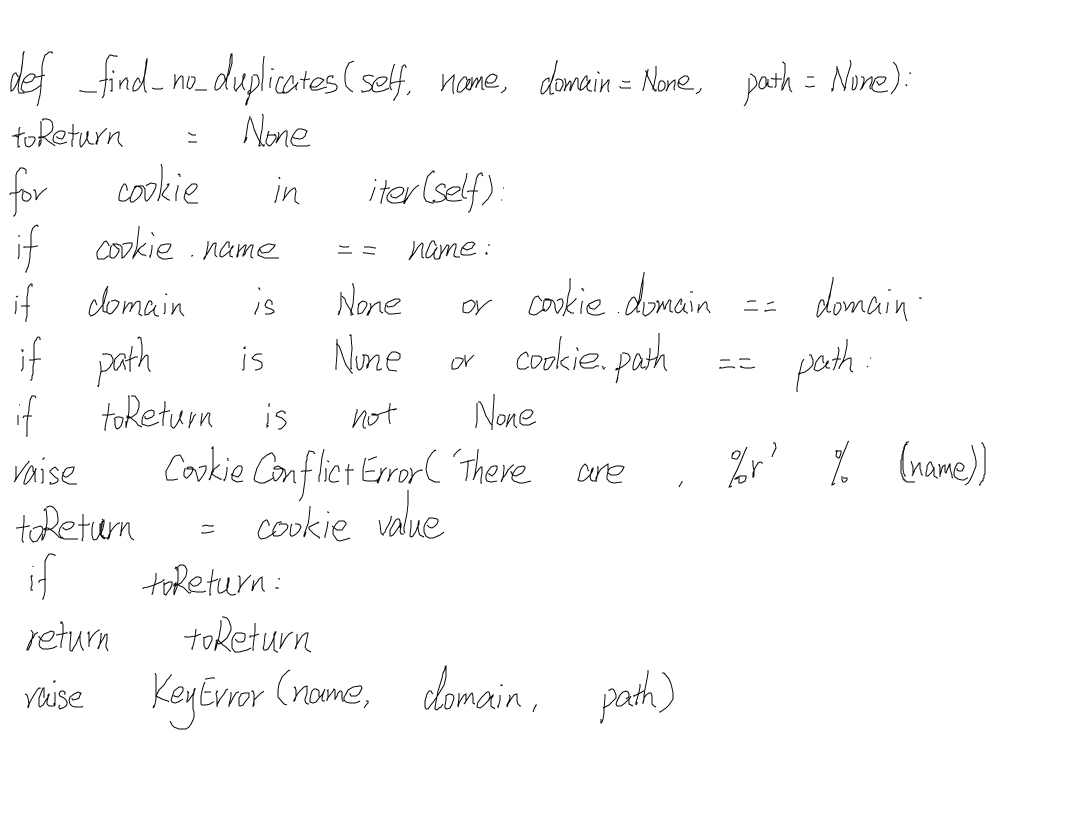 def _find_no_duplicates(self, name, domain = None, path = None):
toReturn = None
for cookie in iter(self):
if cookie.name == name:
if domain is None or cookie.domain == domain.
if path is None or cookie.path == path:
if toReturn is not None
raise CookieConflictError('There are , %r' % (name))
toReturn = cookie value
if toReturn:
return toReturn
raise KeyError(name, domain, path)